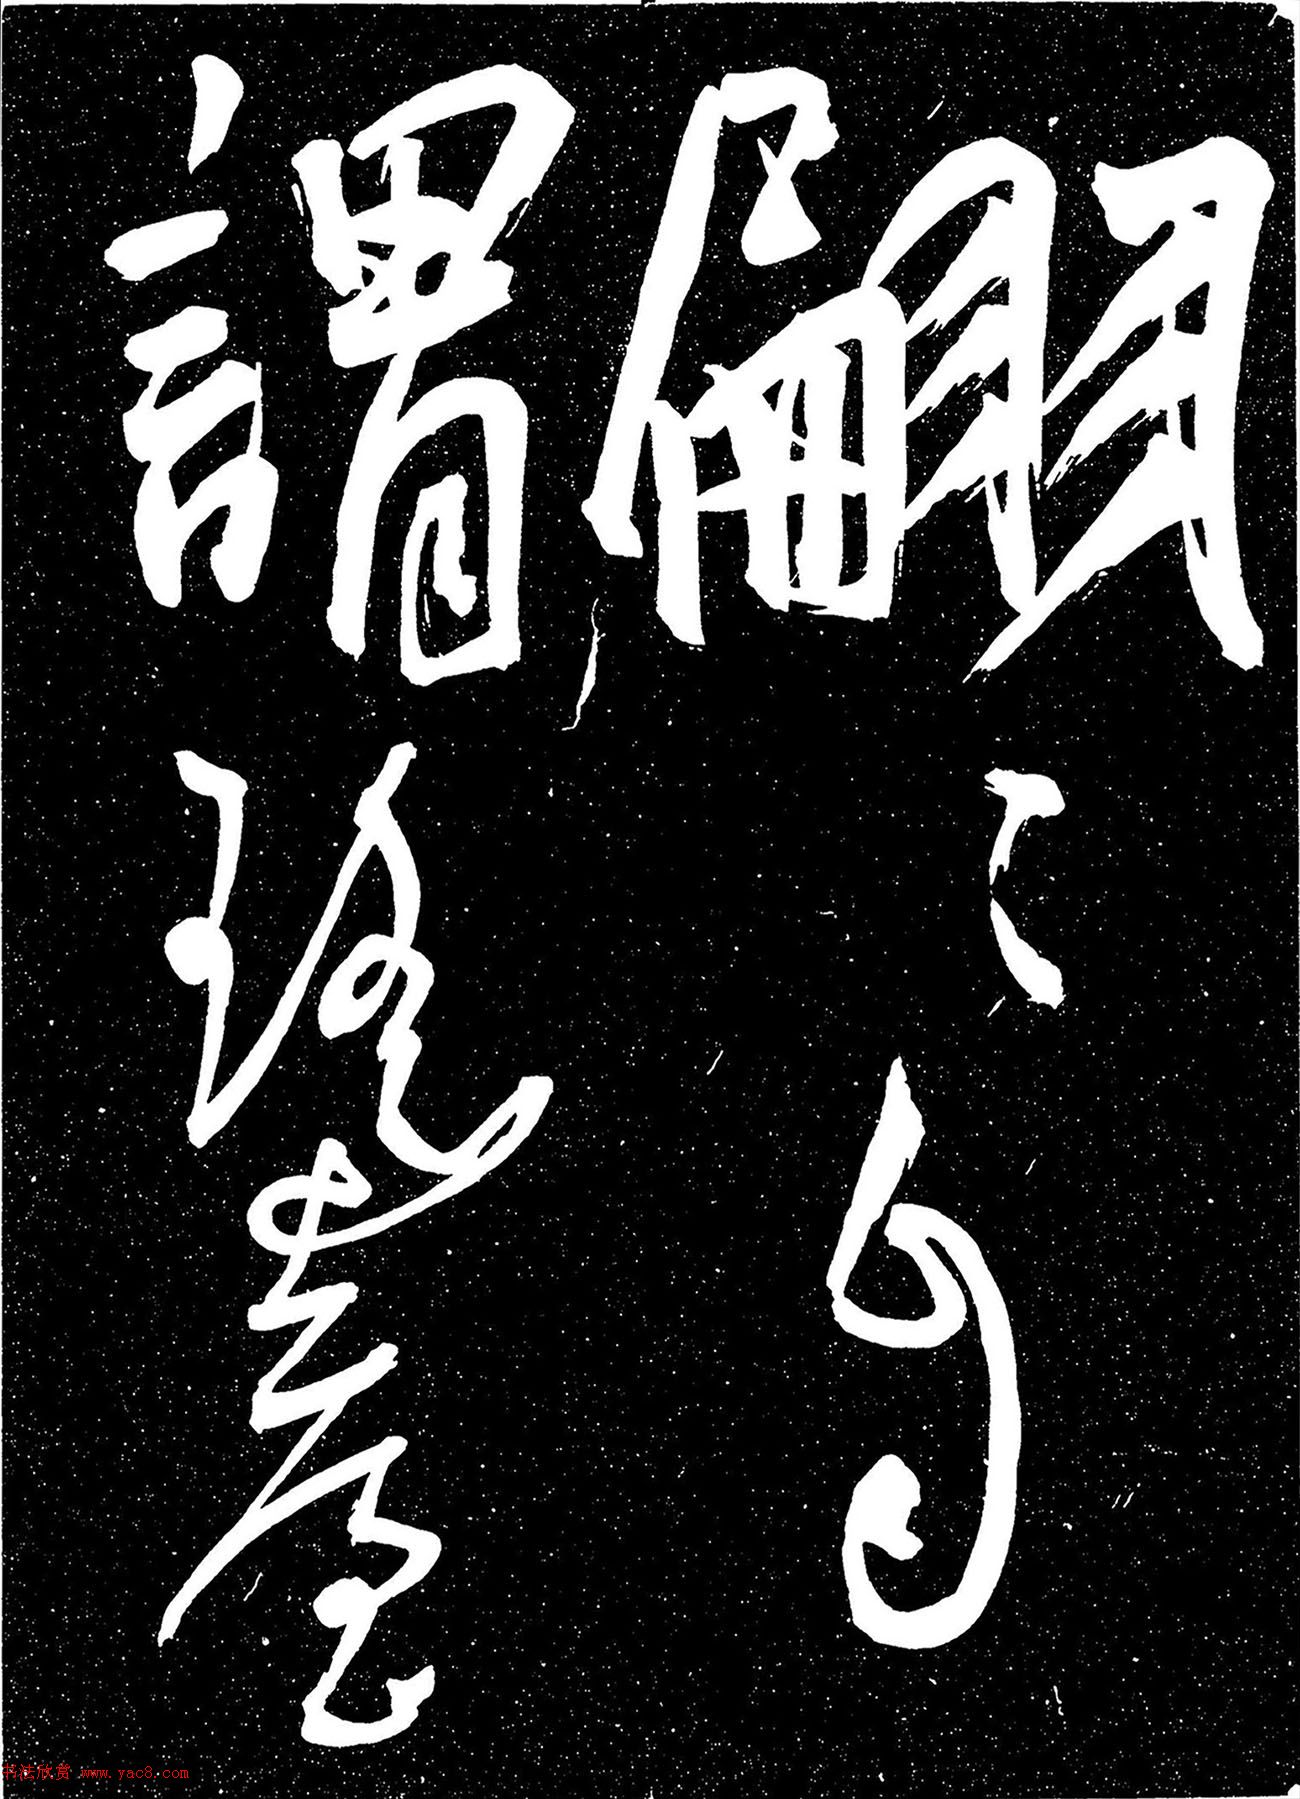 翩々自
謂瑤臺
书法欣赏 www.yac8.com